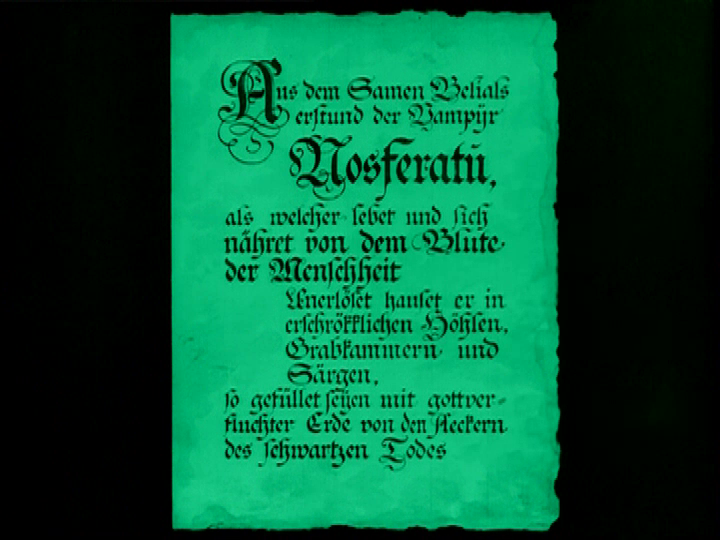 Aus dem Samen Belials
erstund der Vampyr
Nosferatu,
als welcher lebet und sich
nähret von dem Blute
der Menschheit
Unerlöset hauset er in
erschrökklichen Höhlen,
Grabkammern und
Särgen,
so gefüllet seÿen mit gottver-
fluchter Erde von den Aeckern
des schwartzen Todes